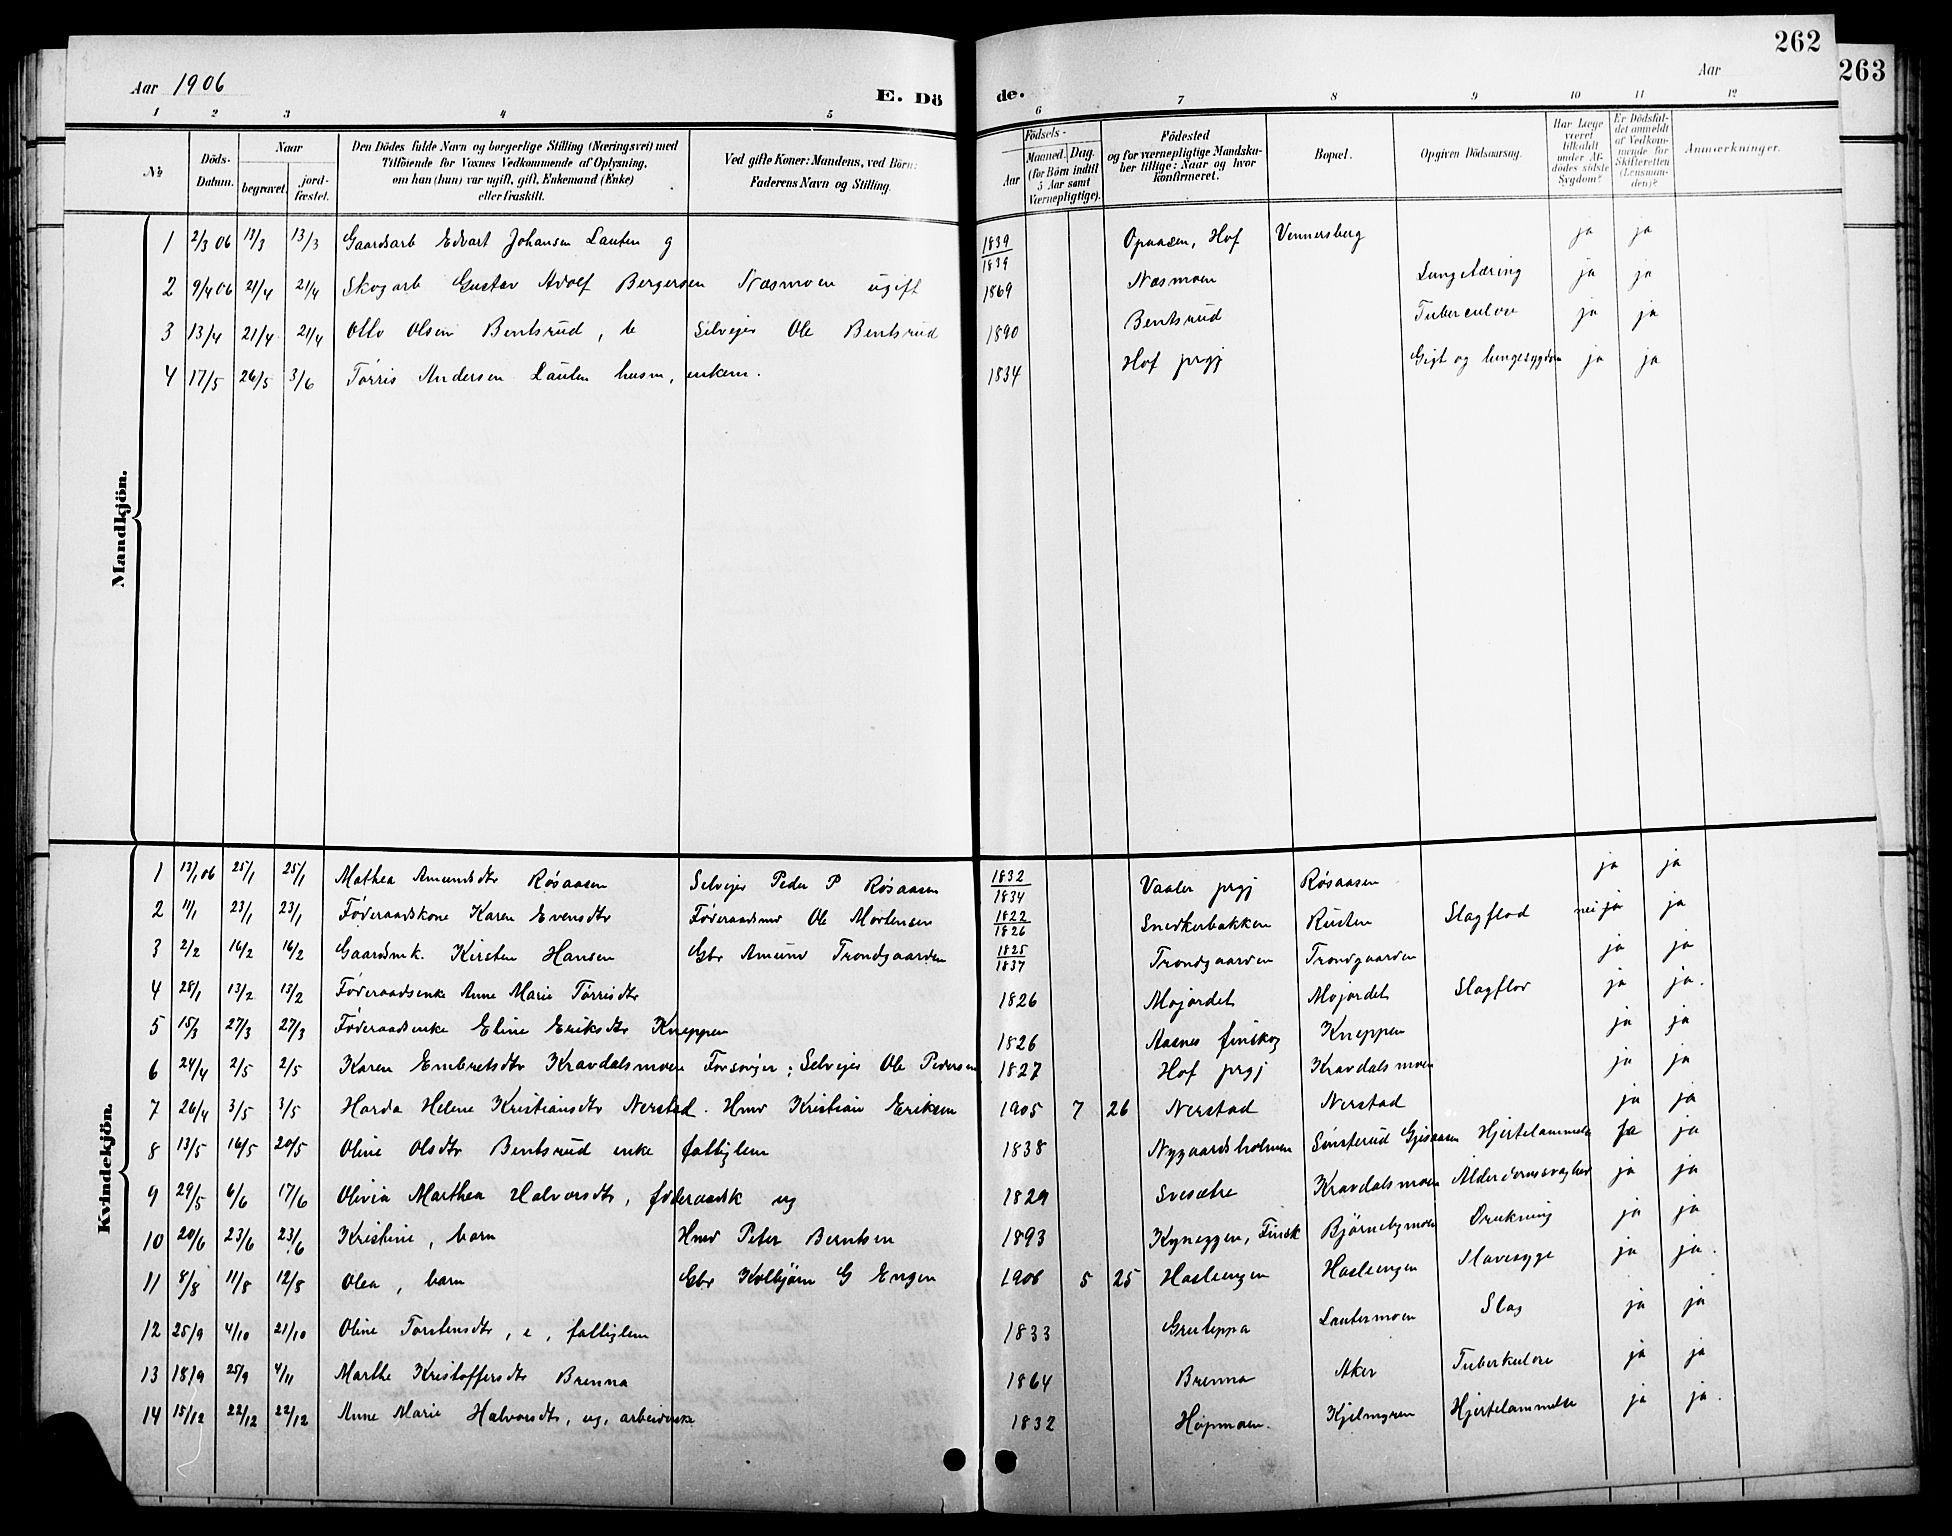 262
263
Aar 1906 E. Dö de. Aar
1 2 3 4 5 6 7 8 9 10 11 12
№ Döds-Datum. Naar begravet. jord-fæstet. Den Dödes fulde Navn og borgerlige Stilling (Næringsvei) med Tilföiende for Voxnes Vedkommende af Oplysning, om han (hun) var ugift, gift, Enkemand (Enke) eller fraskilt. Ved gifte Koner: Mandens, ved Börn: Faderens Navn og Stilling. Födsels- Aar Maaned. Dag. (for Börn indtil 5 Aar samt Værnepligtige). Födested og for værnepligtige Mandskaber tillige: Naar og hvor konfirmeret. Bopæl. Opgiven Dödsaarsag. Har Læge været tilkaldt under Afdödes sidste Sygdom? Er Dödsfaldet anmeldt af Vedkommende for Skifteretten (Lensmanden)? Anmærkninger.
Mandkjön.
1 2/3 06 13/3 13/3 Gaardsarb Edvart Johansen Lauten g 1839 1839 Opaasen, Hof Vennersberg ja ja
2 9/4 06 21/4 21/4 Skogarb Gustav Adolf Bergersen Næsmoen ugift 1869 Næsmoen Lungetæring ja ja
3 13/4 21/4 21/4 Otto Olsen Bentsrud, b Selveier Ole Bentsrud 1890 Bentsrud Tuberculose ja ja
4 17/5 26/5 3/6 Tørris Andersen Lauten husm, enkem. 1834 Hof prgj Gigt og lungesygdom ja ja
Kvindekjön.
1 13/1 06 25/1 25/1 Mathea Amundsdtr Røsaasen Selveier Peder P Røsaasen 1832 1834 Vaaler prgj Røsaasen ja ja
2 11/1 23/1 23/1 Føderaadskone Karen Evensdtr Føderaadsmd Ole Mortensen 1822 1826 Snedkerbakken Rusten Slagflod nei ja ja
3 2/2 16/2 16/2 Gaardmk. Kirsten Hansen Gbr Amund Trondgaarden 1825 1837 Trondgaarden Trondgaarden ja ja
4 28/1 13/2 13/2 Føderaadsenke Anne Marie Tørrisdtr 1826 Mojordet Mojordet Slagflod ja ja.
5 15/3 27/3 27/3 Føderaadsenke Eline Eriksdtr Kneppen 1826 Aasnes finskog Kneppen ja ja
6 24/4 2/5 2/5 Karen Embretsdtr Kravdalsmoen Forsørger: Selveier Ole Pedersen 1827 Hof prgj Kravdalsmoen ja ja
7 26/4 3/5 3/5 Harda Helene Kristiansdtr Nerstad. Hmd Kristian Eriksen 1905 7 26 Nerstad Nerstad ja ja
8 13/5 16/5 20/5 Oline Olsdtr Bentsrud enke fattiglem 1838 Nygaardsholmen Sønsterud Gjesaasen Hjertelammelse ja ja
9 29/5 6/6 17/6 Olivia Marthea Halvorsdtr, føderaadsk ug 1829 Svesætre Kravdalsmoen Alderdomssvaghed ja ja
10 20/6 23/6 23/6 Kristine, barn Hmd Peter Berntsen 1893 Kyneggen, Finsk Bjørnebymoen Drukning ja ja
11 8/8 11/8 12/8 Olea, barn Gbr Kolbjørn G Engen 1906 5 25 Hasleengen Hasleengen Mavesyge ja ja.
12 25/9 4/10 21/10 Oline Torstensdtr, e, fattiglem 1833 Grubeppa Lautermoen Slag ja ja
13 18/9 25/9 4/11 Marthe Kristoffersdtr Brenna 1864 Brenna Aker Tuberkulose ja ja
14 15/12 22/12 22/12 Anne Marie Halvorsdtr, ug, arbeiderske 1832 Høpmoen. Kjelmyren Hjertelammelse ja ja.